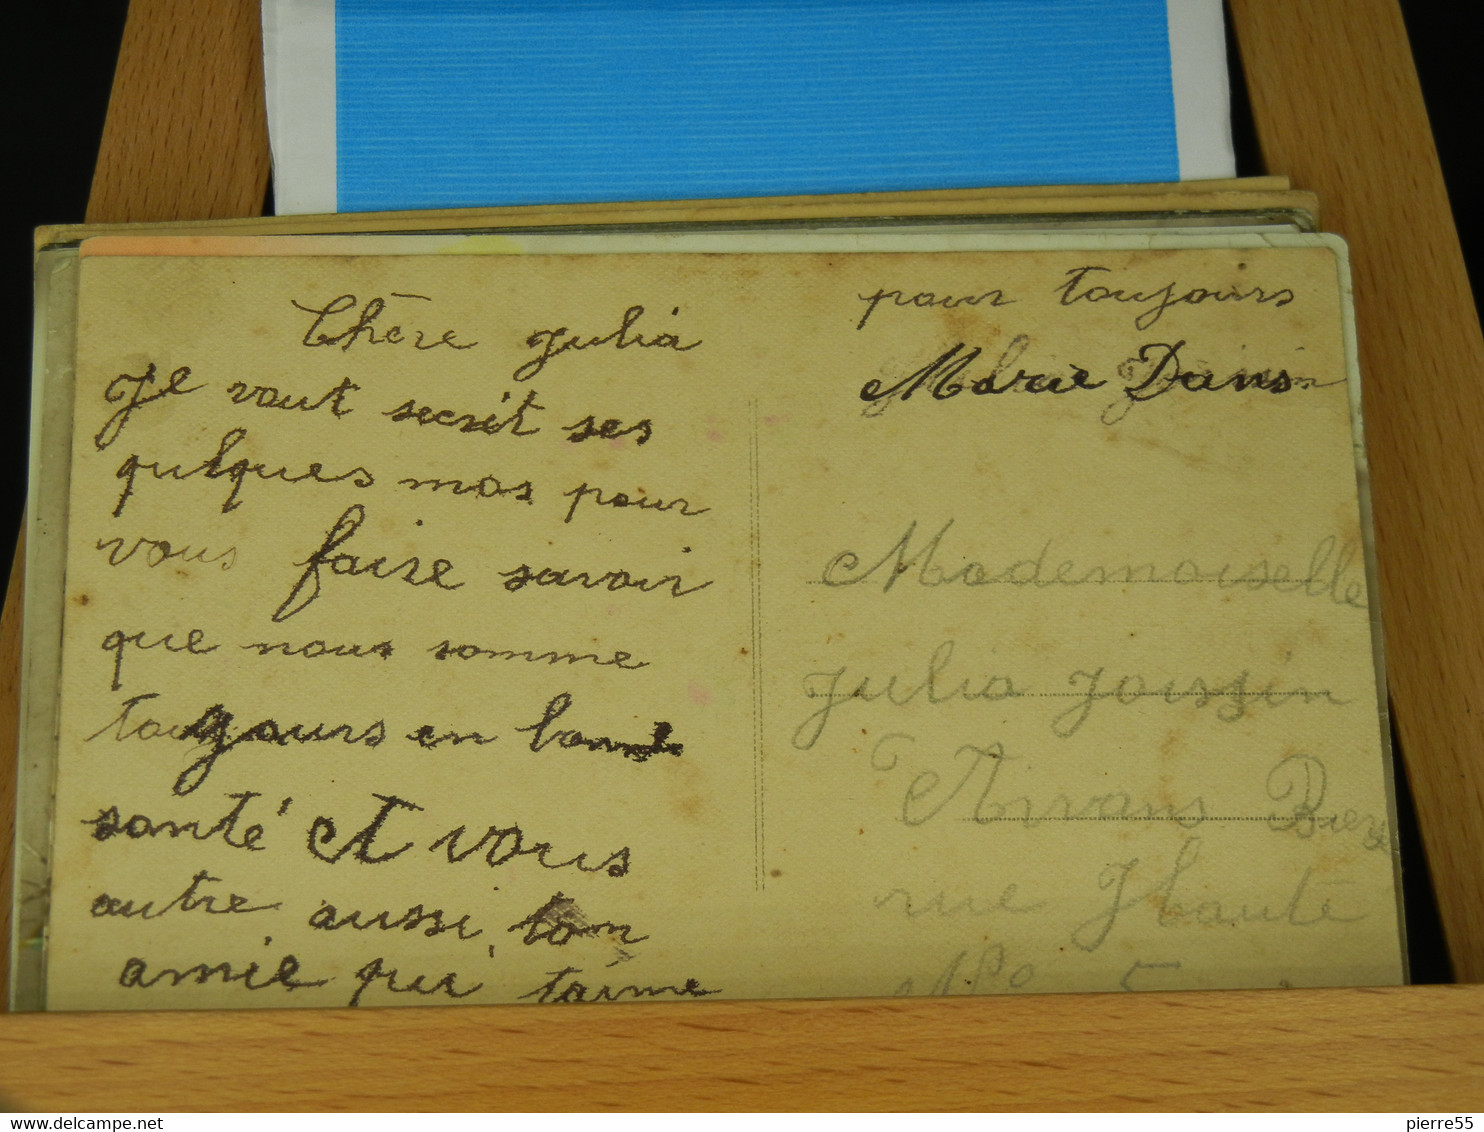 Chère julia
Je vout secrit ses
qulques mos pour
vous faise savoir
que nous somme
toujours en bonne
santé et vous
autre aussi, ton
amie qui t'aime
pour toujours
Marie Dans
Mademoiselle
julia joissin
rue
N° 5
pierre55